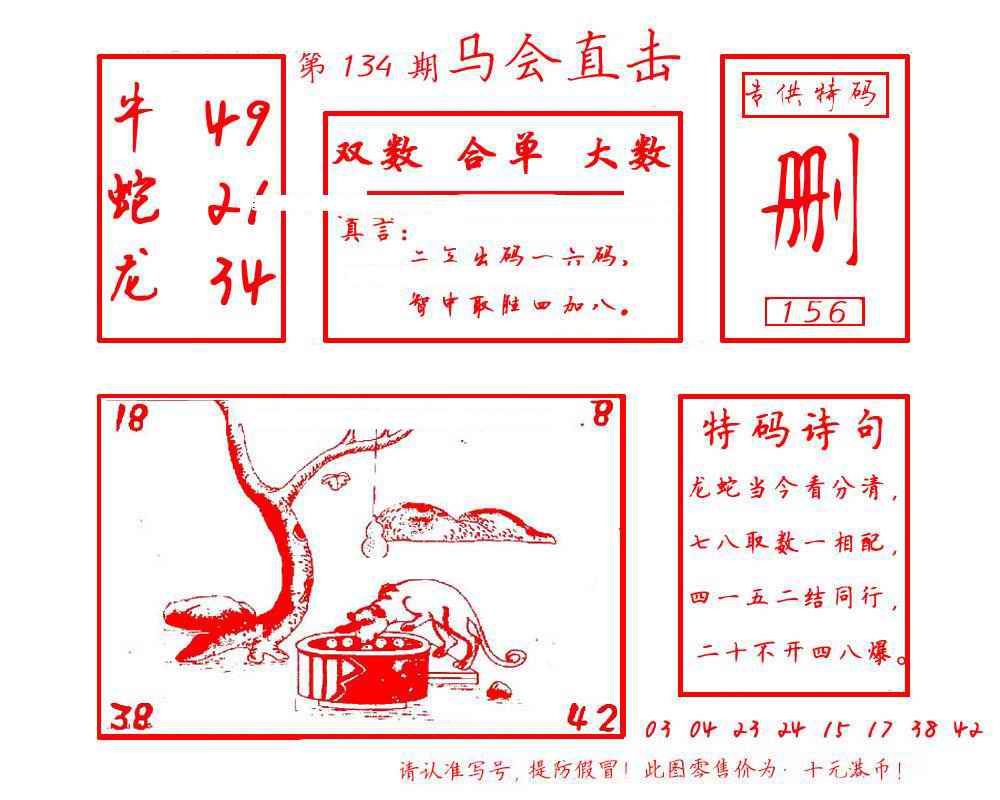 第134期 马会直击
牛 49
蛇 21
龙 34
双数 合单 大数
真言：
二五出码一六码，
智中取胜四加八。
专供特码
删
156
18
8
38
42
特码诗句
龙蛇当今看分清，
七八取数一相配，
四一五二结同行，
二十不开四八爆。
03 04 23 24 15 17 38 42
请认准写号，提防假冒！此图零售价为·十元港币！